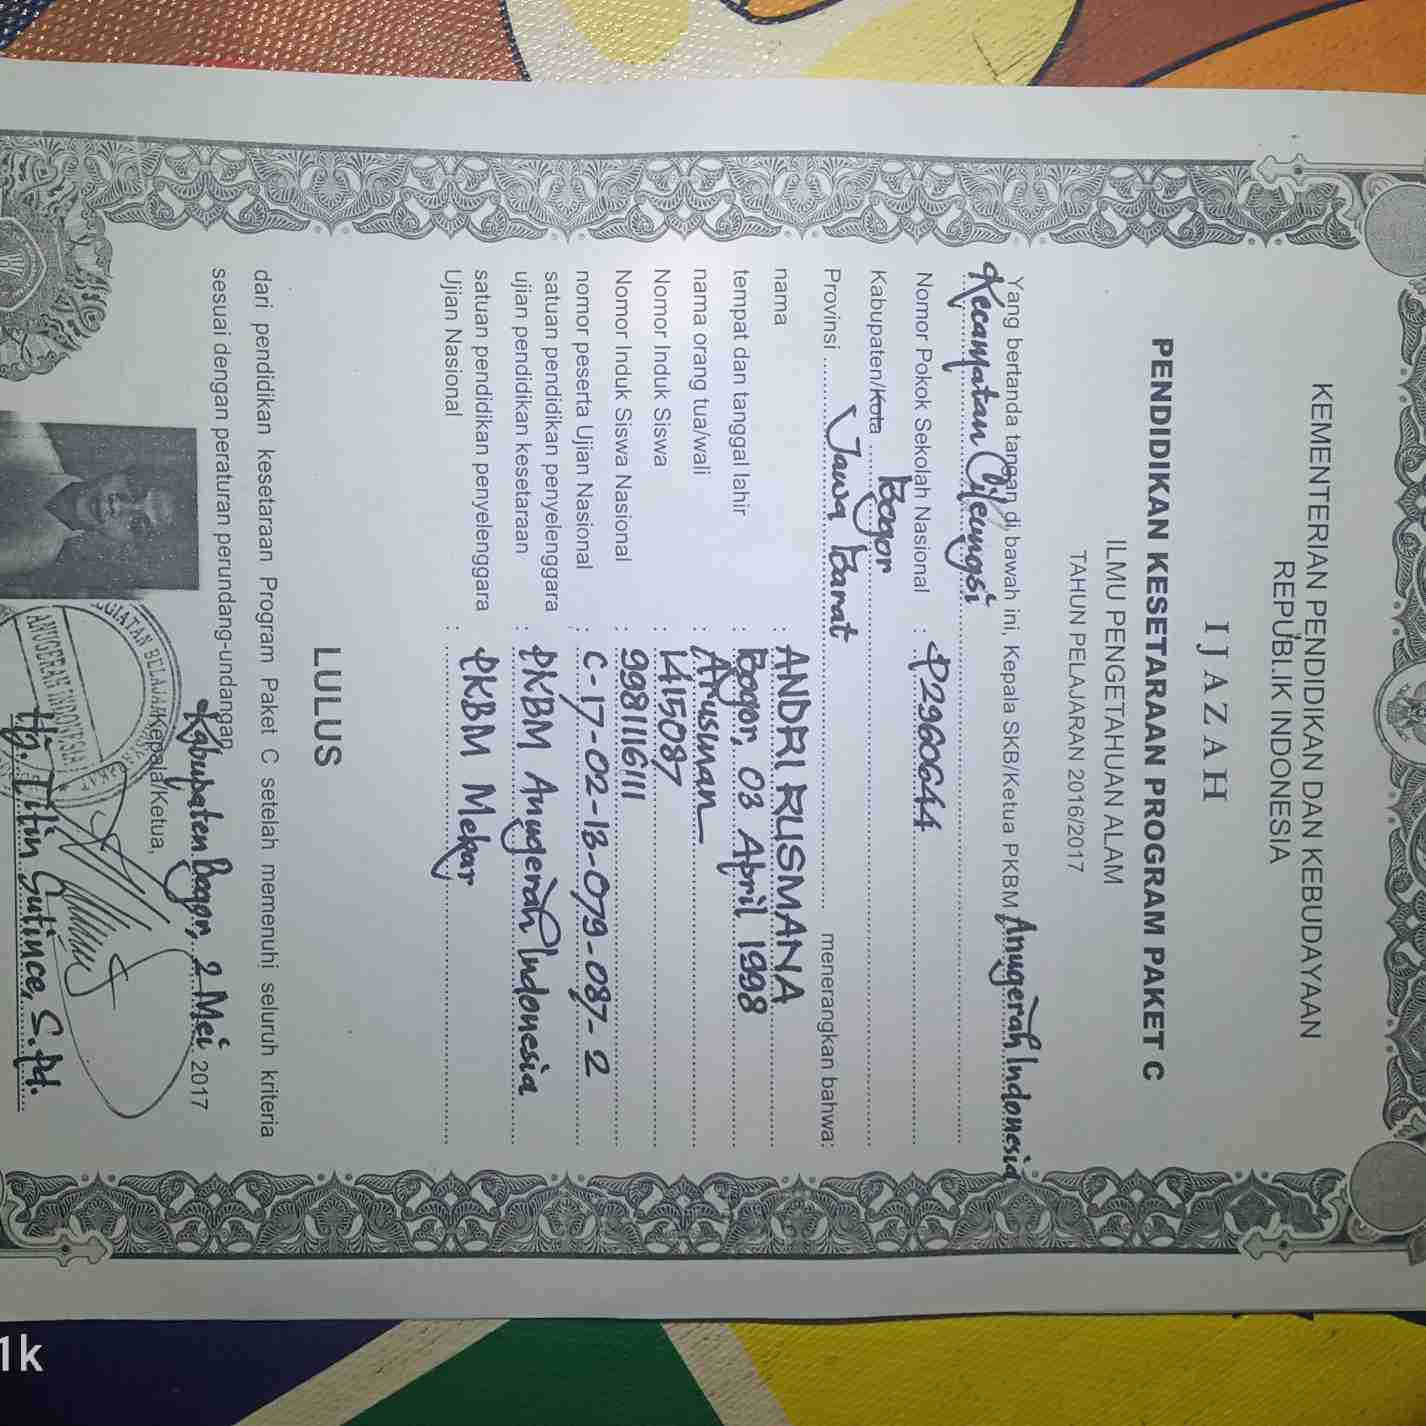 KEMENTERIAN PENDIDIKAN DAN KEBUDAYAAN
REPUBLIK INDONESIA
IJAZAH
PENDIDIKAN KESETARAAN PROGRAM PAKET C
ILMU PENGETAHUAN ALAM
TAHUN PELAJARAN 2016/2017
Yang bertanda tangan di bawah ini, Kepala SKB/Ketua PKBM Anugerah Indonesia
Kecamatan Cileungsi
Nomor Pokok Sekolah Nasional : P2960644
Kabupaten/Kota Bogor
Provinsi Jawa Barat menerangkan bahwa:
nama : ANDRI RUSMANA
tempat dan tanggal lahir : Bogor, 03 April 1998
nama orang tua/wali : Arusman
Nomor Induk Siswa : 1415087
Nomor Induk Siswa Nasional : 9981116111
nomor peserta Ujian Nasional : C-17-02-13-079-087-2
satuan pendidikan penyelenggara
ujian pendidikan kesetaraan : PKBM Anugerah Indonesia
satuan pendidikan penyelenggara : PKBM Mekar
Ujian Nasional
LULUS
dari pendidikan kesetaraan Program Paket C setelah memenuhi seluruh kriteria
sesuai dengan peraturan perundang-undangan.
Kabupaten Bogor, 2 Mei 2017
Kepala/Ketua,
KEGIATAN BELAJAR
ANUGERAH INDONESIA
Hj. Titin Sutince, S.Pd.
1k